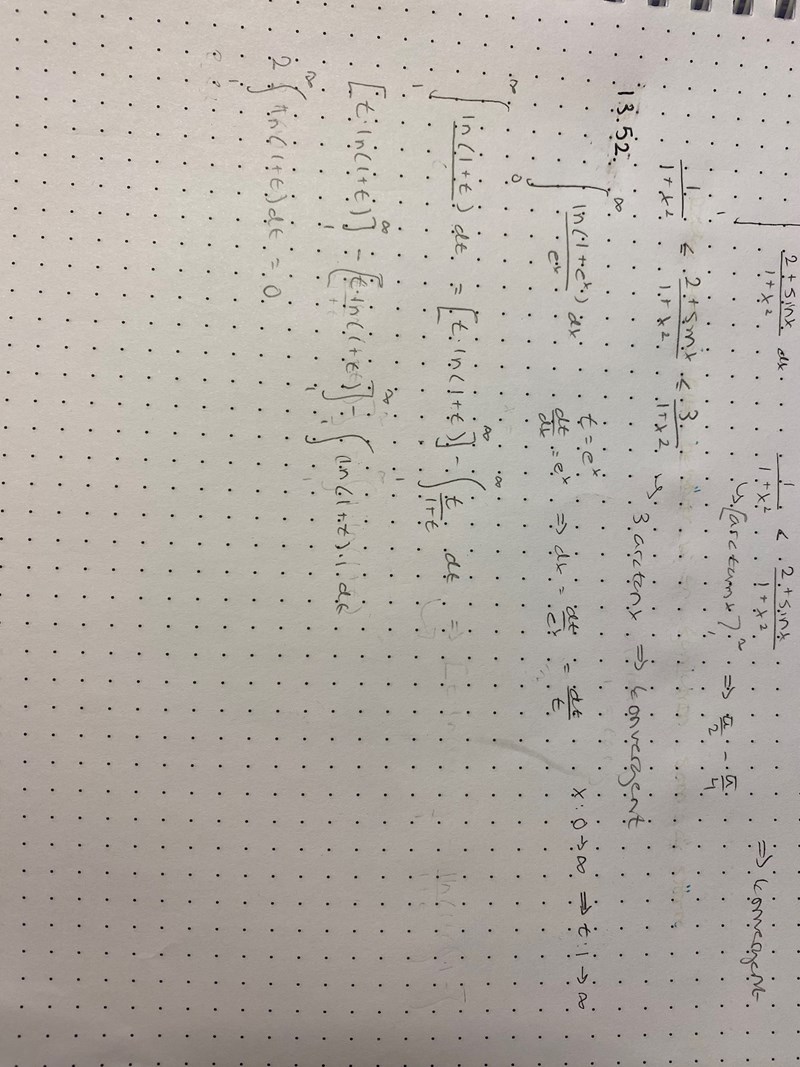 ∫₁ (2+sinx)/(1+x²) dx   1/(1+x²) < (2+sinx)/(1+x²)   => konvergent
↳ [arctanx]₁^∞ => π/2 - π/4
1/(1+x²) ≤ (2+sinx)/(1+x²) ≤ 3/(1+x²) ↳ 3 arctanx => konvergent
13.52.
∫₀^∞ ln(1+eˣ)/eˣ dx   t = eˣ   dt/dx = eˣ => dx = dt/eˣ = dt/t   x: 0→∞ => t: 1→∞
∫₁^∞ ln(1+t) dt = [t·ln(1+t)]^∞ - ∫₁^∞ t/(1+t) dt =>
[t·ln(1+t)]₁^∞ - [t·ln(1+t)]₁^∞ - ∫₁^∞ ln(1+t)·1·dt
2∫₁^∞ ln(1+t)dt = 0